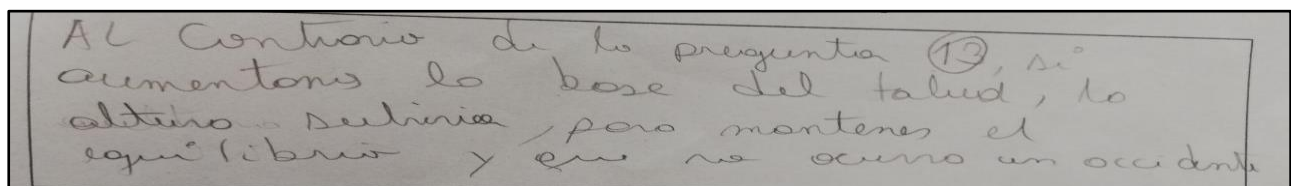 AL Contrario de la pregunta 13, si
aumentams la base del talud, la
altura subiria, para mantener el
equilibrio y que no ocurra un accidente